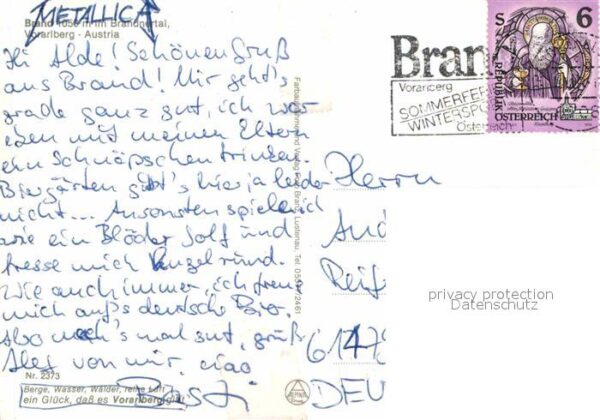 METALLICA
Brand 1050 m im Brandnertal,
Vorarlberg - Austria
Hi Alde! Schönen Gruß
aus Brand! Mir geht's
grade ganz gut, ich war
eben mit meinen Eltern
ein Schnäpschen trinken.
Biergärten gibt's hier ja leider
nicht... Ansonsten spiele ich
wie ein Blöder Golf und
fresse mich kugelrund.
Wie auch immer, ich freu
mich auf's deutsche Bier.
Also mach's mal gut, grüß
Alex von mir, ciao
Basti
Nr. 2373
Berge, Wasser, Wälder, reine Luft
ein Glück, daß es Vorarlberg gibt
Lustenau, Tel.
Brand
Vorarlberg
SOMMERFER
WINTERSPO
Österreich
S 6
REPUBLIK
ÖSTERREICH
Herrn
And
Reif
6147
DEU
privacy protection
Datenschutz